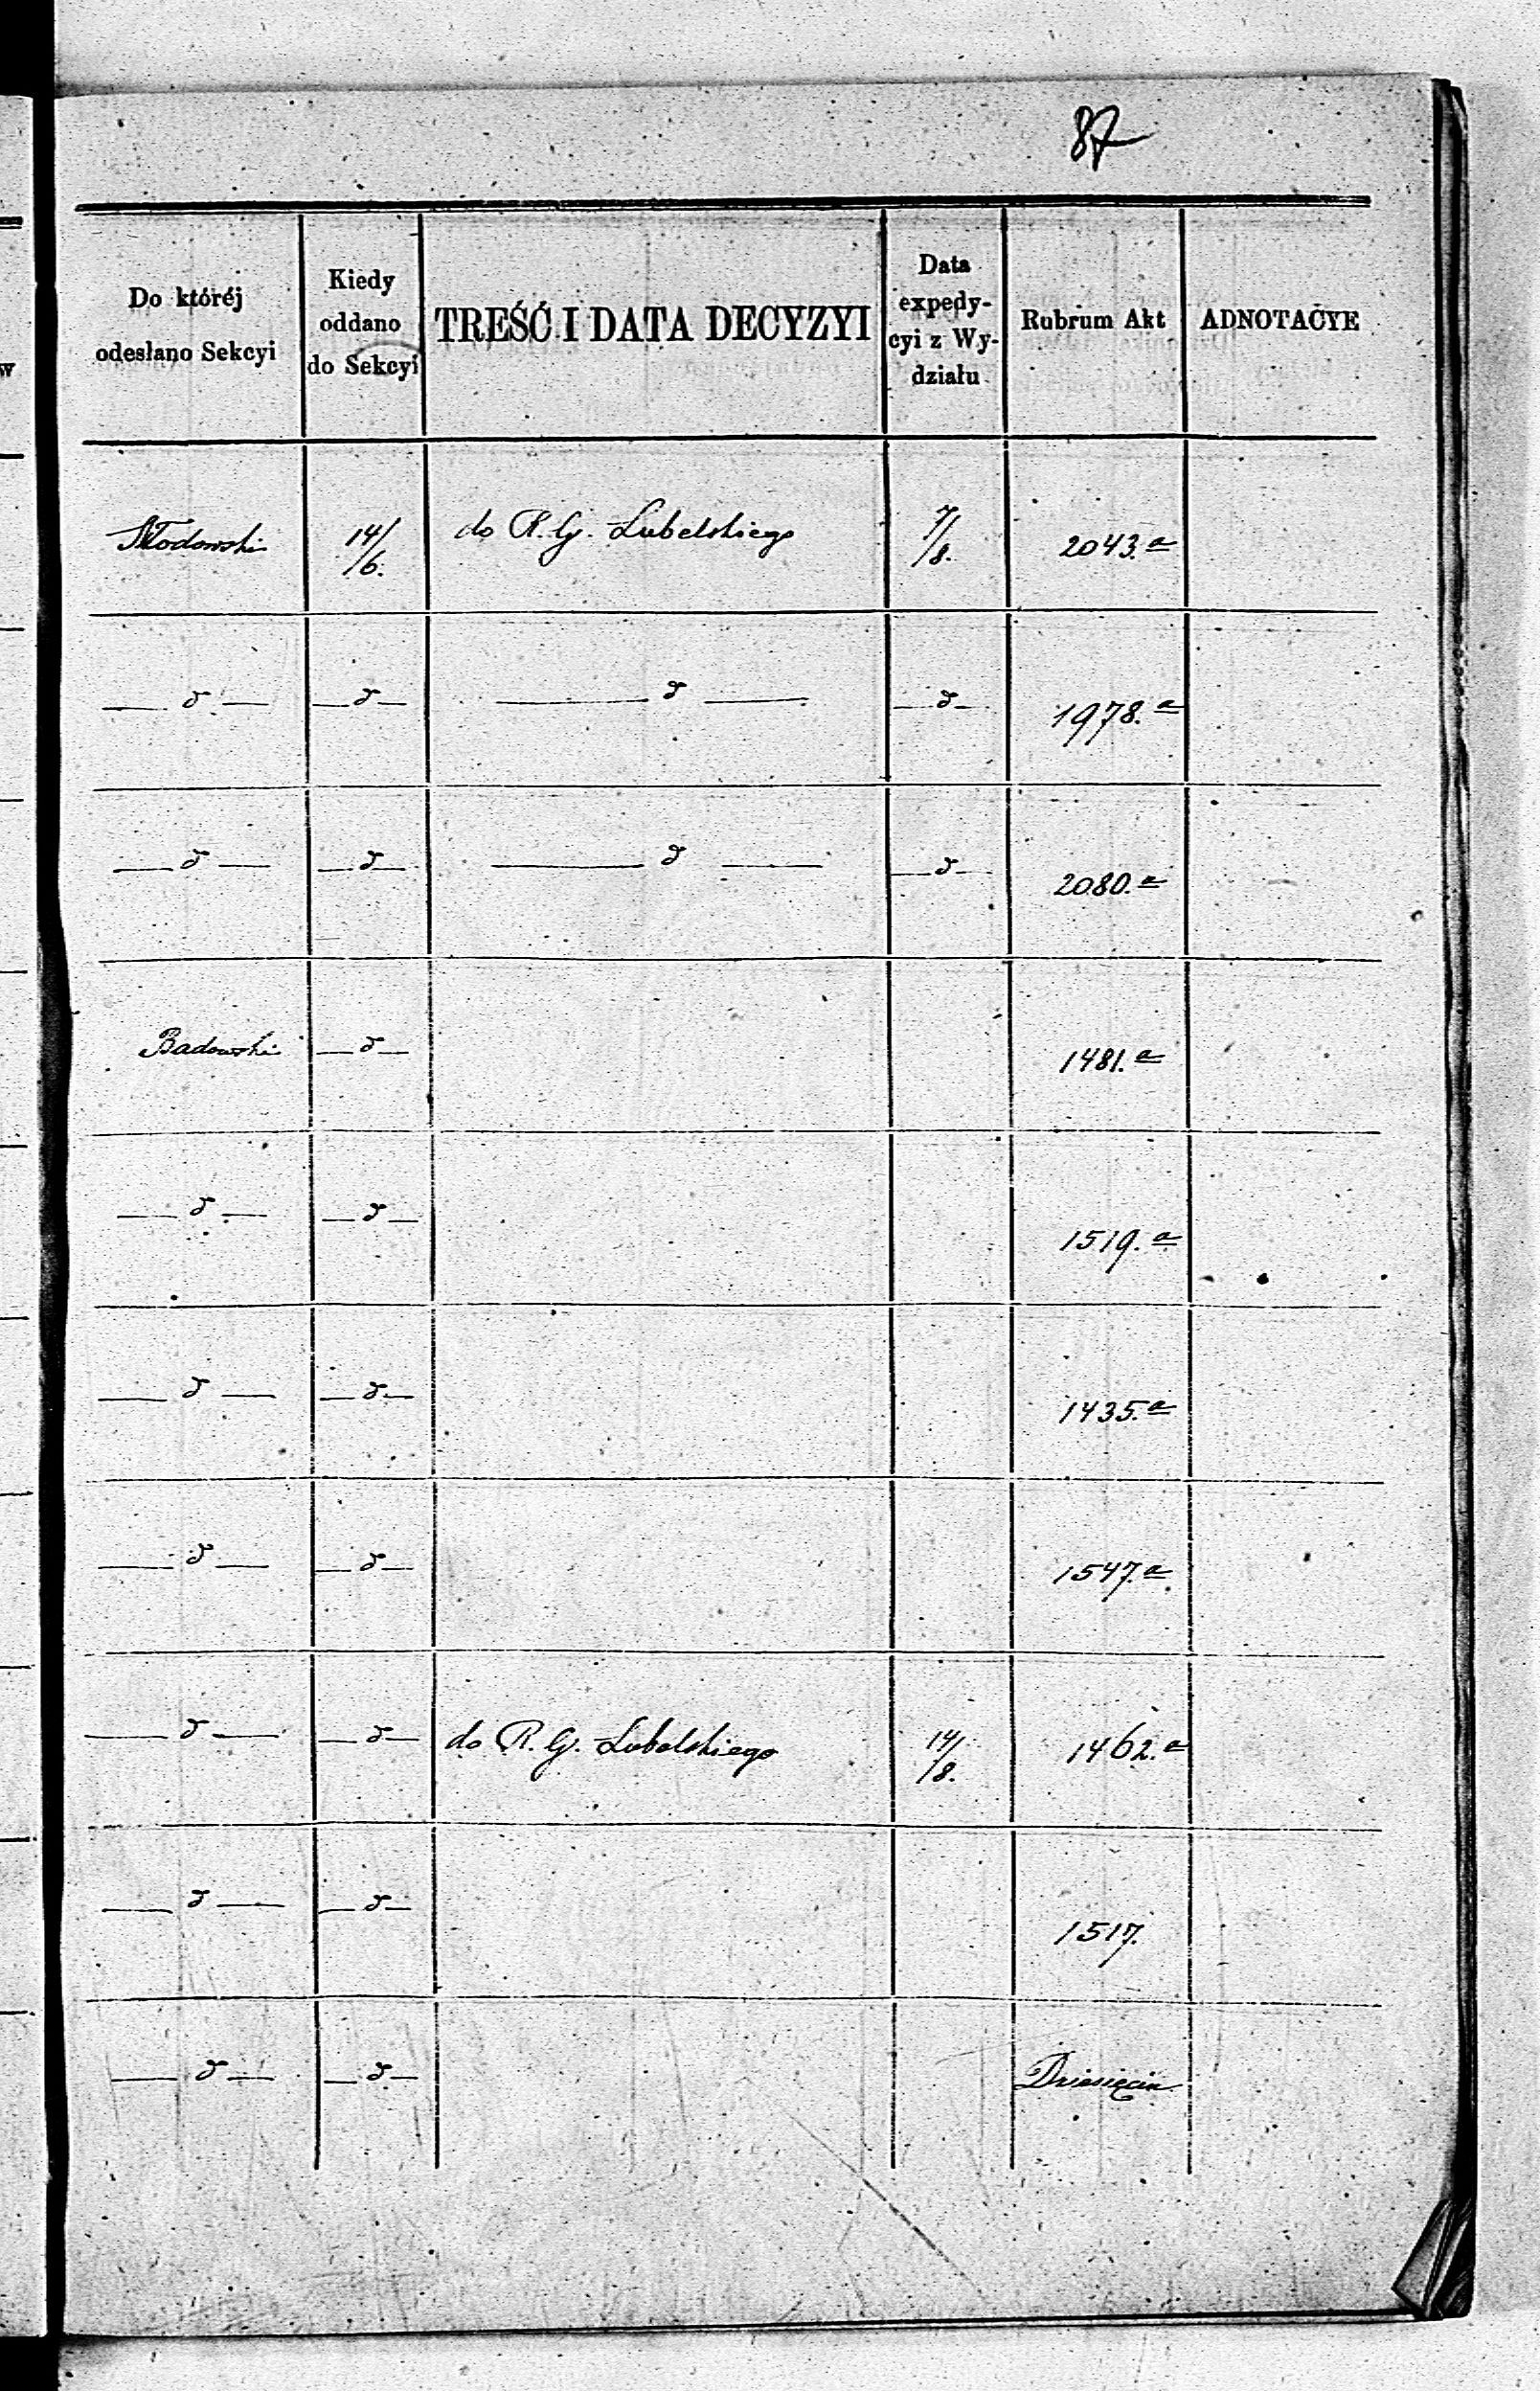 87
Do któréj
odesłano Sekcyi
Kiedy
oddano
do Sekcyi
TREŚĆ I DATA DECYZYI
Data
expedy-
cyi z Wy-
działu
Rubrum Akt
ADNOTACYE
w
14/6. do R. G. Lubelskiego 7/8. 2043.a
— d — — d — — d — — d — 1978.a
— d — — d — — d — — d — 2080.a
Badowski — d — 1481.a
— d — — d — 1519.a
— d — — d — 1435.a
— d — — d — 1547.a
— d — — d — do R. G. Lubelskiego 14/8. 1462.a
— d — — d — 1517.
— d — — d —